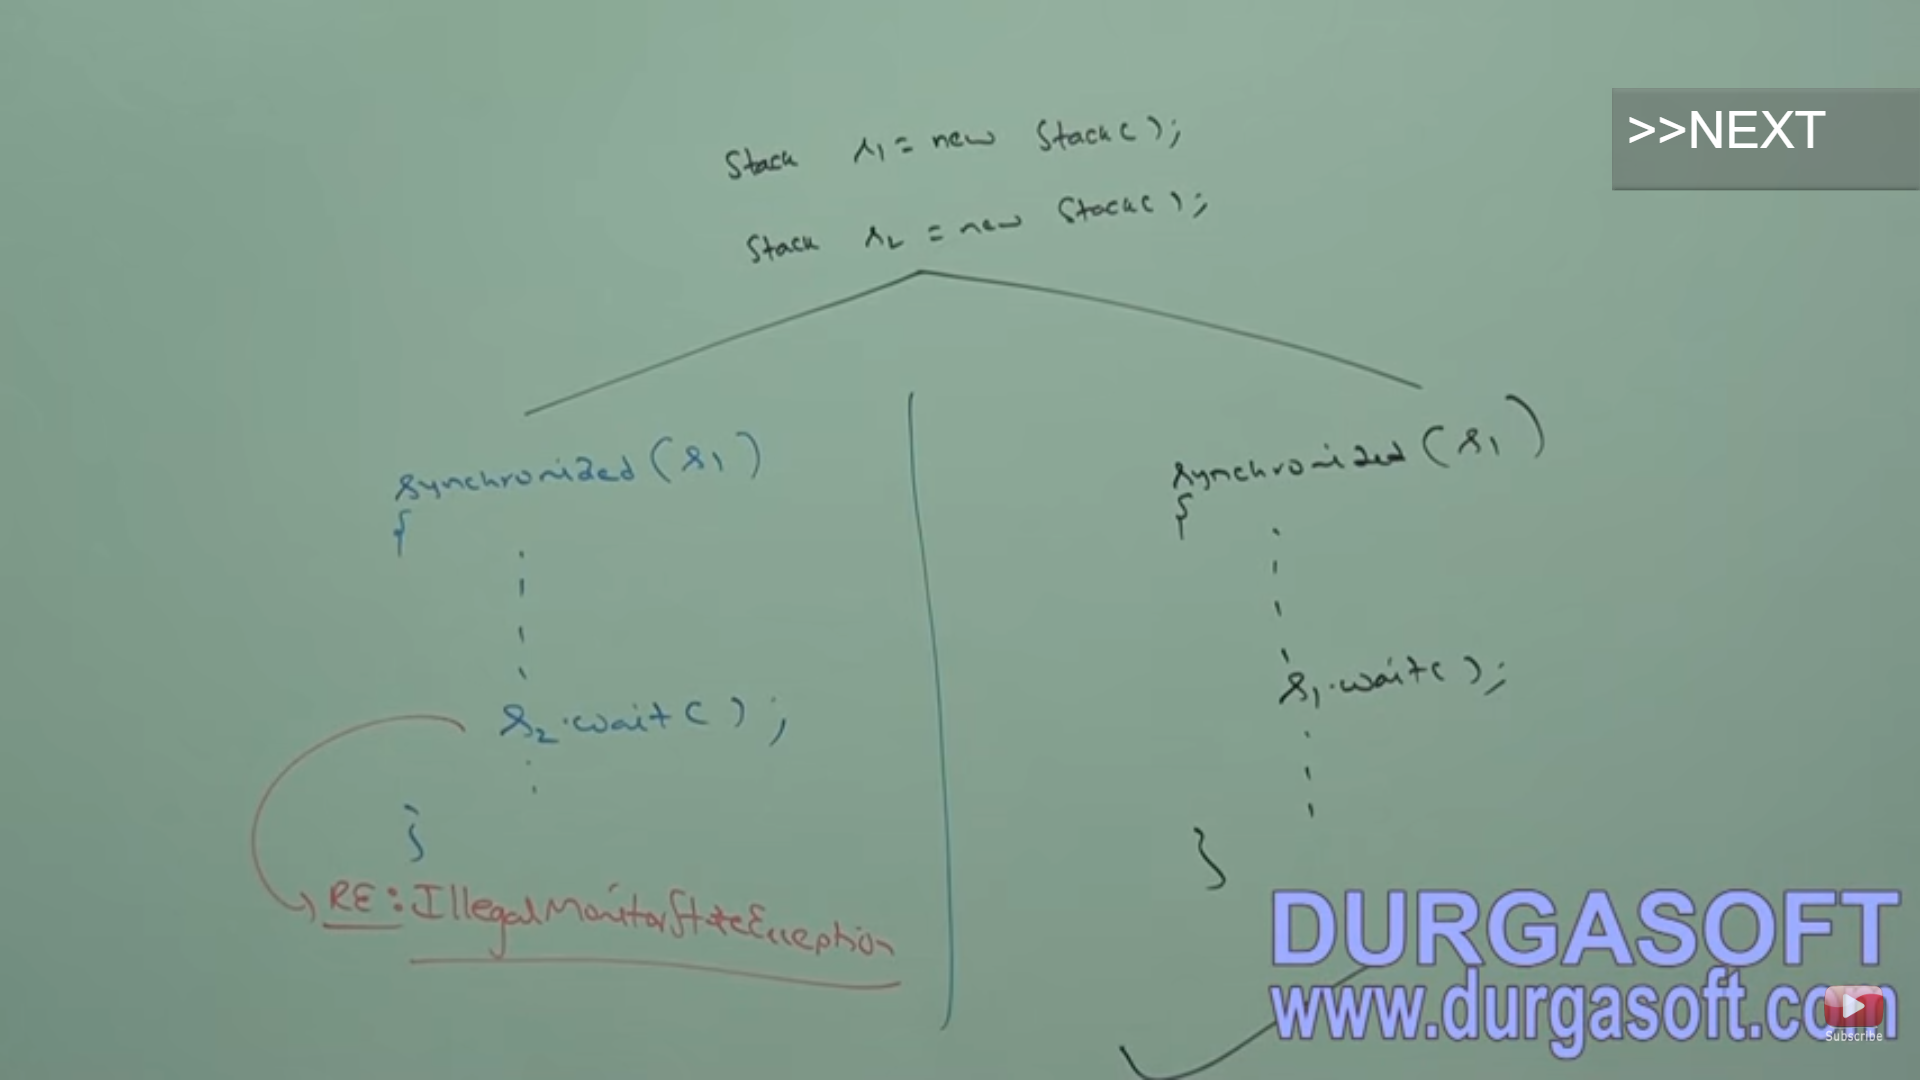 >>NEXT
Stack s1 = new Stack();
Stack s2 = new Stack();
synchronized(s1)
{
s2.wait();
}
RE: IllegalMonitorStateException
synchronized(s1)
{
s1.wait();
}
DURGASOFT
www.durgasoft.com
Subscribe